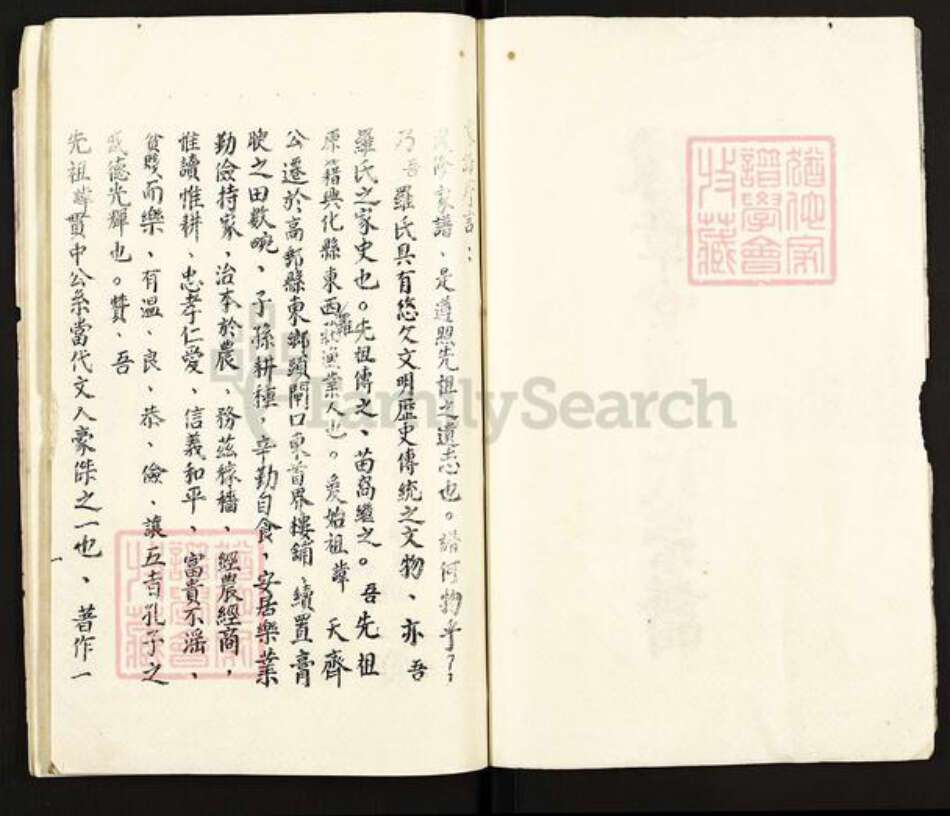 言：
家譜、是遵照先祖之遺志也。譜何物乎？
乃吾羅氏具有悠久文明歷史傳統之文物、亦吾
羅氏之家史也。先祖傳之、苗裔繼之。吾先祖
原籍興化縣東西羅莊漁業人也。爰始祖諱天齊
公遷於高郵縣東鄉頭閘口東首界樓鋪、續置膏
腴之田數碗、子孫耕種、辛勤自食、安居樂業
勤儉持家、治本於農、務茲稼穡、經農經商、
惟讀惟耕、忠孝仁愛、信義和平、富貴不淫、
貧賤而樂、有溫、良、恭、儉、讓五者孔子之
德光輝也。贊、吾
先祖諱貫中公系當代文人豪傑之一也、著作一
猶他家
譜學會
收藏
猶他家
譜學會
收藏
FamilySearch